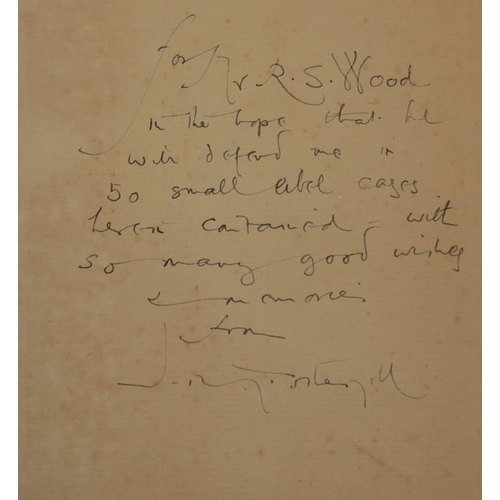 for Mr R. S. Wood
in the hope that he
will defend me in
50 small libel cases
herein contained – with
so many good wishes
& memories
from
J. R. Fothergill